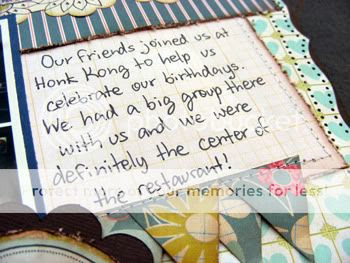 Our friends joined us at
Honk Kong to help us
celebrate our birthdays.
We had a big group there
with us and we were
definitely the center of
the restaurant!
photobucket
Protect more of your memories for less!